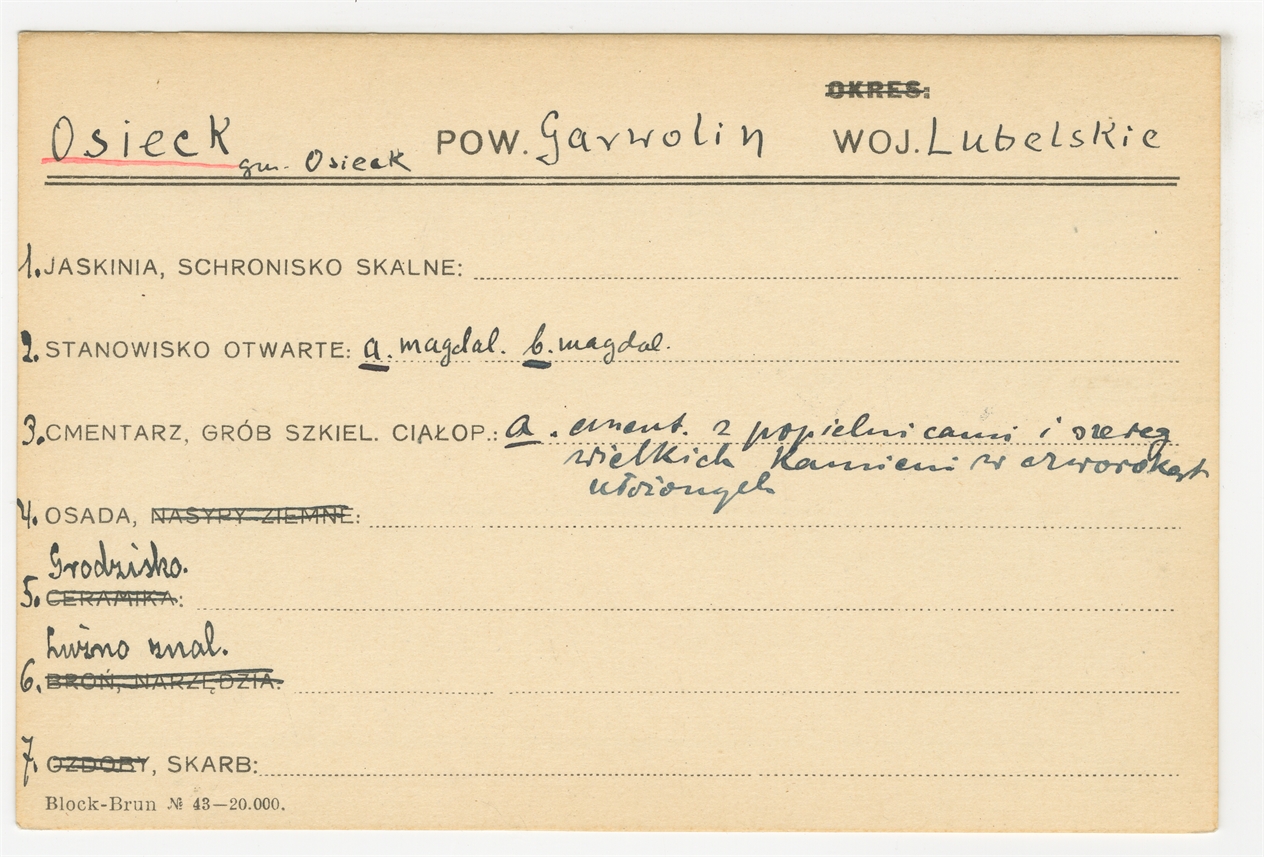 OKRES:
Osieck gm. Osieck POW. Garwolin WOJ. Lubelskie
1. JASKINIA, SCHRONISKO SKALNE:
2. STANOWISKO OTWARTE: a. magdal. b. magdal.
3. CMENTARZ, GRÓB SZKIEL. CIAŁOP.: a. cment. z popielnicami i szereg
wielkich kamieni w czworokąt
ułożonych
4. OSADA, NASYPY ZIEMNE:
Grodzisko.
5. CERAMIKA:
Luźno znal.
6. BROŃ, NARZĘDZIA:
7. OZDOBY, SKARB:
Block-Brun № 43—20.000.